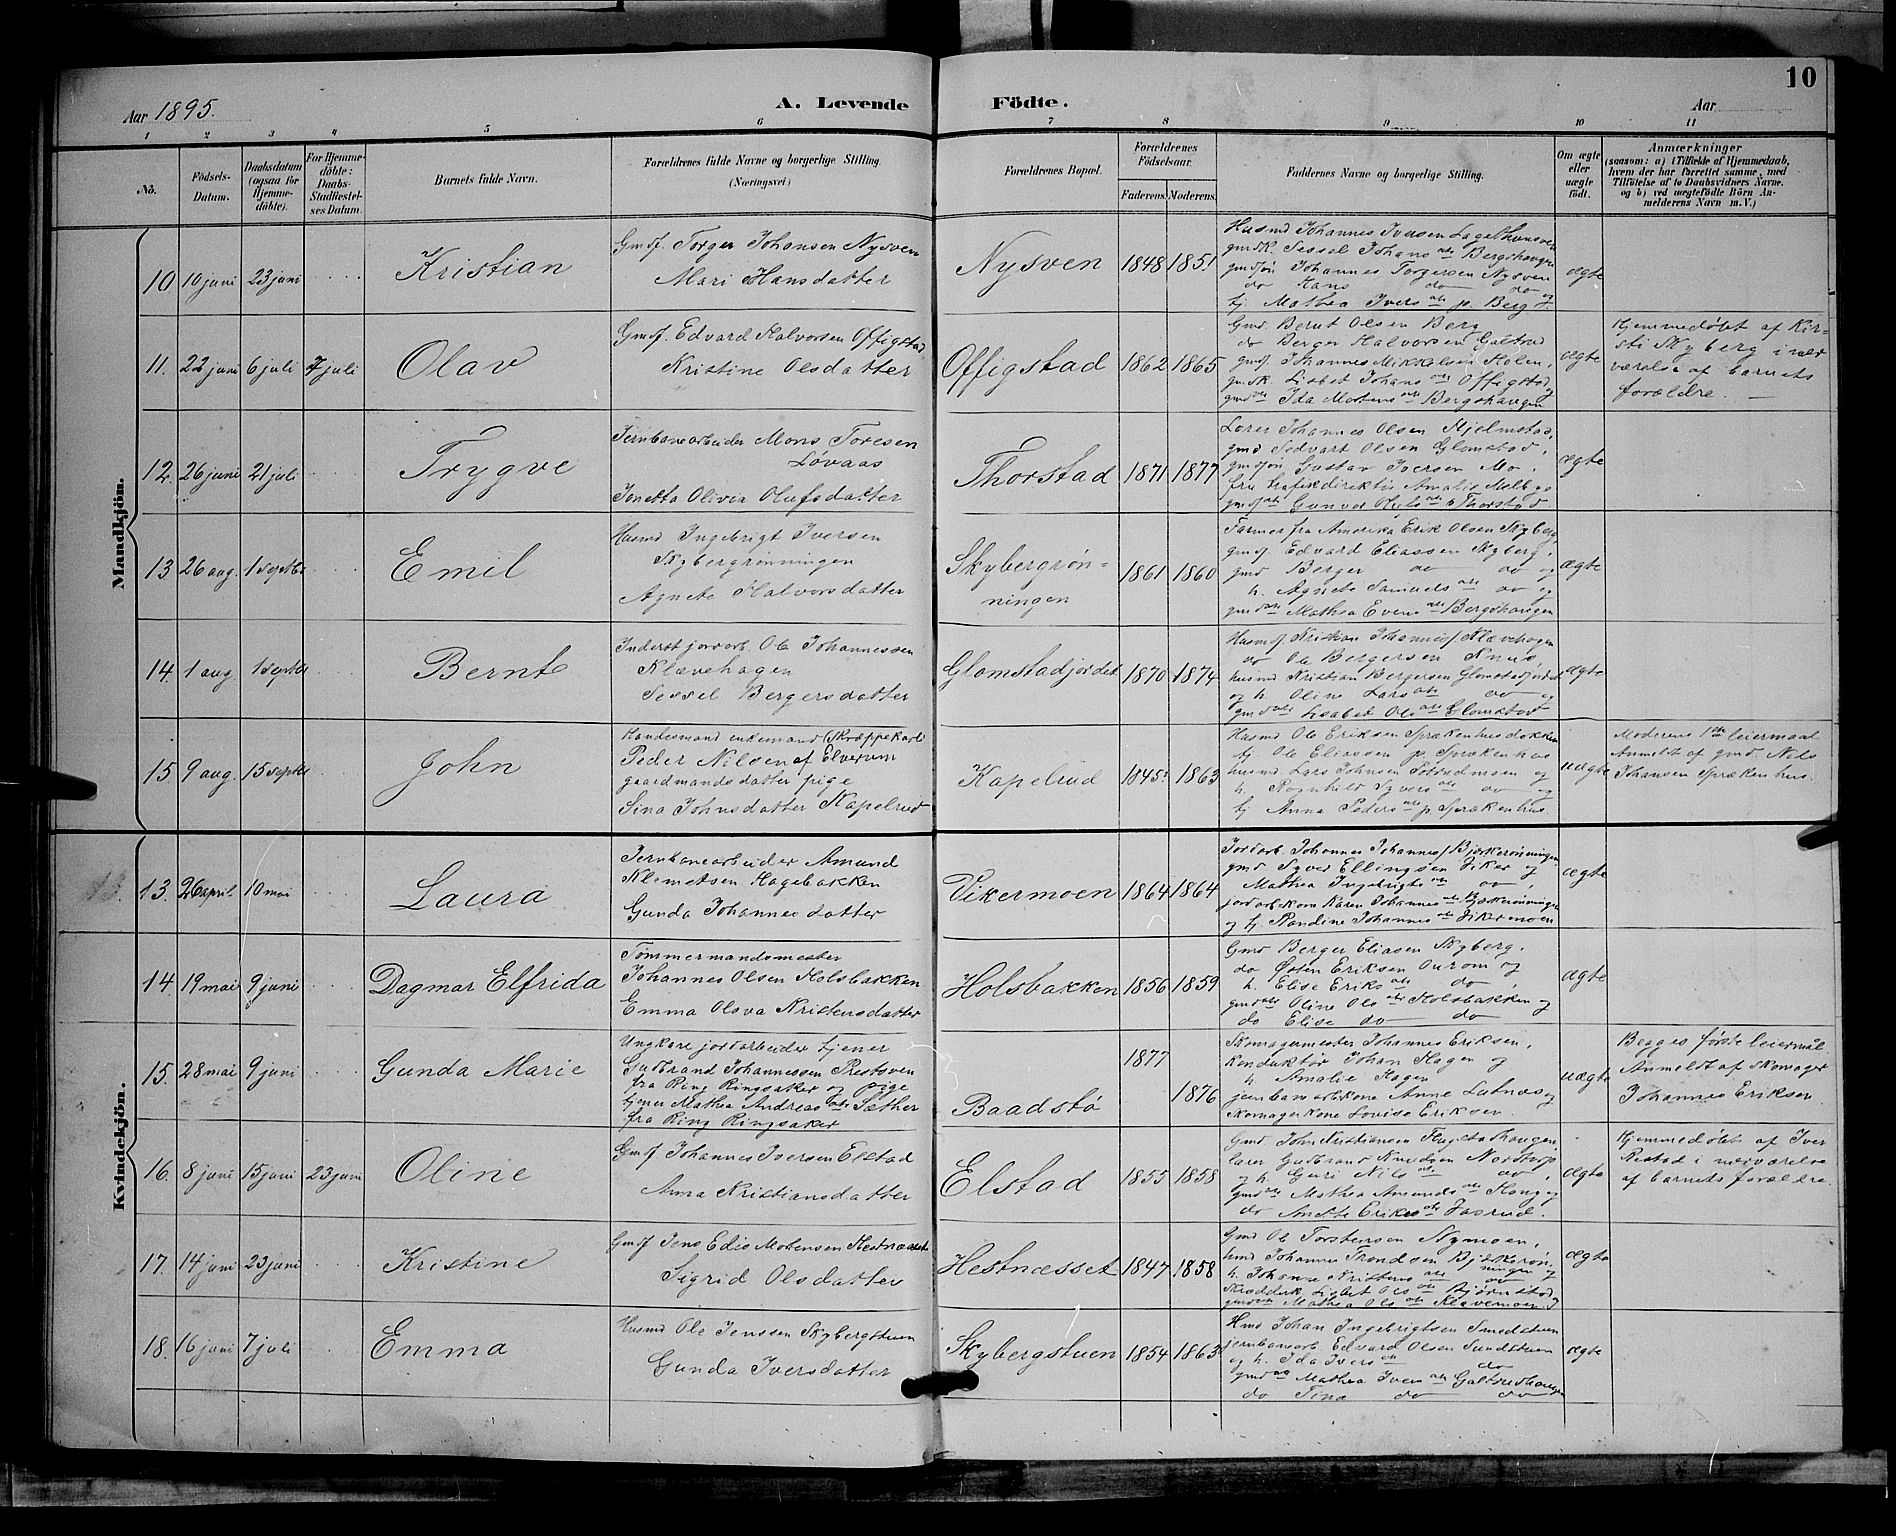 10
Aar 1895.
A. Levende Födte.
Aar
1 2 3 4 5 6 7 8 9 10 11
No.
Födsels-Datum.
Daabsdatum (ogsaa for Hjemme-döbte).
For Hjemme-döbte: Daabs-Stadfæstel-ses Datum.
Barnets fulde Navn.
Forældrenes fulde Navne og borgerlige Stilling. (Næringsvei)
Forældrenes Bopæl.
Forældrenes Födselsaar.
Faderens. Moderens.
Faddernes Navne og borgerlige Stilling.
Om ægte eller uægte födt.
Anmærkninger
(saasom: a) i Tilfælde af Hjemmedaab,
hvem der har forrettet samme, med
Tilföielse af to Daabsvidners Navne.
og b) ved uægtefödte Börn An-
melderens Navn m.V.)
Mandkjön.
10. 10 juni 23 juni
Kristian
Gmdf. Torger Johansen Nysven
Mari Hansdatter
Nysven 1848 1851
Husmd Johannes Iversen
gmdk. Sessel Johans dtr Bergshaugen
gmdsøn Johannes Torgersen Nysven
do Hans do do og
tj. Mathea Ivers dtr p. Berg
ægte
11. 22 juni 6 juli 7 juli
Olav
Gmdf. Edvard Halvorsen Offigstad
Kristine Olsdatter
Offigstad 1862 1865
Gmd. Bernt Olsen Berg
do Berger Halvorsen Galtrud
gmdf. Johannes Mikkelsen Holen,
gmdk. Lisbet Johans dtr Offigstad
gmd dtr Ida Mortens dtr Bergshaugen
ægte
Hjemmedøbt af Kir-
sti Skyberg i nær
værelse af barnets
forældre.
12. 26 juni 21 juli
Trygve
Jernbanearbeider Mons Toresen
Løvaas
Jonetta Olivia Olufsdatter
Thorstad 1871 1877
Lærer Johannes Olsen Hjelmstad,
gmd Sedvart Olsen Glomstad,
gmdsøn Gustav Iversen Mo,
fru trafikdirektør Amalie
gmd dtr Gunvor Thorstad
ægte
13 26 aug. 1 septbr
Emil
Husmd Ingebrigt Iversen
Skybergrønningen
Agnete Halvorsdatter
Skybergrøn-
ningen 1861 1860
Farmer fra Amerika Erik Olsen Skyberg
gmdf. Edvart Eliassen Skyberg,
gmd Berger do do og
h. Agnete Samuels dtr do og
gmd dtr Mathea Evens dtr Bergshaugen
ægte
14. 1 aug 1 septbr
Bernt
Inderst jordarb. Ole Johannessen
Klævehagen
Sessel Bergersdatter
Glomstadjordet 1870 1874
Husmdf. Kristian Johannes/ Klævehagen
do Ole Bergersen
husmd Kristian Bergersen Glomstadjordet
og h. Oline Lars dtr do og
gmd dtr Lisabet Ols dtr Glomstad
ægte
15 9 aug. 15 septbr
John
Handesmand enkemand (Skræppekarl)
Peder Nilsen af Elverum
gaardmandsdatter pige
Sina Johnsdatter Kapelrud
Kapelrud 1845 1863
Husmd Ole Eriksen Sprækenhusbakken
tj. Ole Eliassen p. Sprækenhus
husmd Lars Johnsen og
h. Ragnhild Syvers dtr do og
tj. Anna Peders dtr p. Sprækenhus.
uægte
Moderens 1ste leiermaal
Anmeldt af gmd Nils
Johansen Sprækenhus.
Kvindekjön.
13. 26 april. 10 mai
Laura
Jernbanearbeider Amund
Klemetsen Hagebakken
Gunda Johannesdatter
Vikermoen 1864 1864
Jordarb. Johannes Johannes/ Bjerkerønningen
gmd Syver Ellingsen Viker og
Mathea Ingebrigts dtr do,
jordarb kone Karen Johannes dtr Bjerkerønningen
og tj. Randine Johannes dtr Vikermoen
ægte
14. 19 mai 9 juni
Dagmar Elfrida
Tømmermandsmester
Johannes Olsen Holsbakken
Emma Olova Kristensdatter
Holsbakken 1856 1859
Gmd Berger Eliasen Skyberg.
do Østen Eriksen Aurom og
h. Elise Eriks dtr do,
gmd dtr Oline Ols dtr Holsbakken og
do Elise do do
ægte
15. 28 mai 9 juni
Gunda Marie
Ungkare jordarbeider tjener
Gudbrand Johannessen Prestsven
fra Ring Ringsaker og pige
tjener Mathea Andreas dtr Sæther
fra Ring Ringsaker
Baadstø 1877 1876
Skomagermester Johannes Eriksen,
konduktør Johan Hagen og
h. Amalie Hagen
jernbanearb kone Anne og
Skomagerkone Lovise Eriksen
uægte
Begges første leiermål
Anmeldt af Skomager
Johannes Eriksen
16. 8 juni 15 juni 23 juni
Oline
Gmdf Johannes Iversen Elstad
Anna Kristiansdatter
Elstad 1855 1858
Gmd. John Kristiansen
lærer Gudbrand Knudsen Nordstrup
og h. Guri Nils dtr do,
gmd dtr Mathea Amunds dtr Haug og
do Anette Eriks dtr
ægte
Hjemmedøbt af Iver
Restad i nærværelse
af barnets forældre.
17. 14 juni 23 juni
Kristine
Gmdf Jens Edis Mortensen Hestnæsset
Sigrid Olsdatter
Hestnæsset 1847 1858
Gmd Ole Torstensen Nymoen,
hmd Johannes Trondsen Bjerkerøn-
ningen og
h. Johanne Kristens dtr do
Skrædderk. Lisbet Ols dtr Bjørnstad
gmd dtr Mathea Ols dtr Klævemoen
ægte
18. 16 juni 7 juli
Emma
Husmd Ole Jenssen Skybergstuen
Gunda Iversdatter
Skybergstuen 1854 1863
Hmd Johan Ingebrigtsen Smedstuen
jernbanearb Edvard Olsen Sundstuen
og h. Ida Ivers dtr do
gmd dtr Mathea Ivers dtr Galtrudhaugen
do Tina do do
ægte